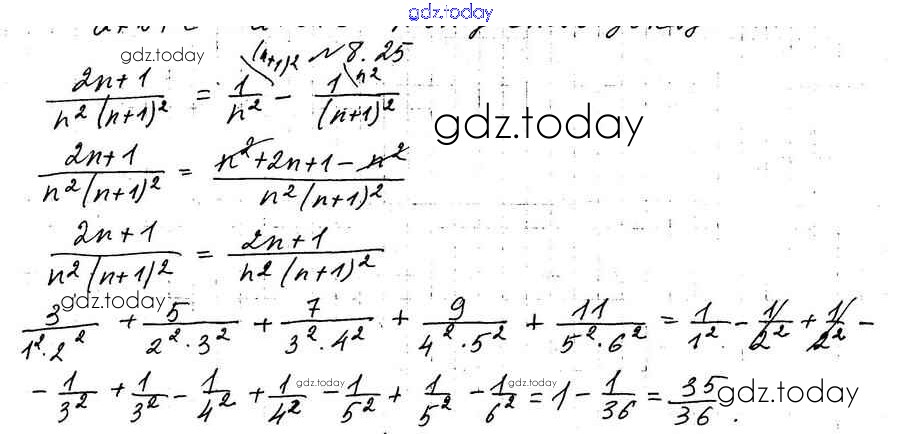 gdz.today
№ 8.25
(n+1)² n²
gdz.today
(2n+1)/(n²(n+1)²) = 1/n² - 1/(n+1)²
gdz.today
(2n+1)/(n²(n+1)²) = (n²+2n+1-n²)/(n²(n+1)²)
(2n+1)/(n²(n+1)²) = (2n+1)/(n²(n+1)²)
gdz.today
3/(1²·2²) + 5/(2²·3²) + 7/(3²·4²) + 9/(4²·5²) + 11/(5²·6²) = 1/1² - 1/2² + 1/2² -
- 1/3² + 1/3² - 1/4² + 1/4² - 1/5² + 1/5² - 1/6² = 1 - 1/36 = 35/36.
gdz.today gdz.today gdz.today